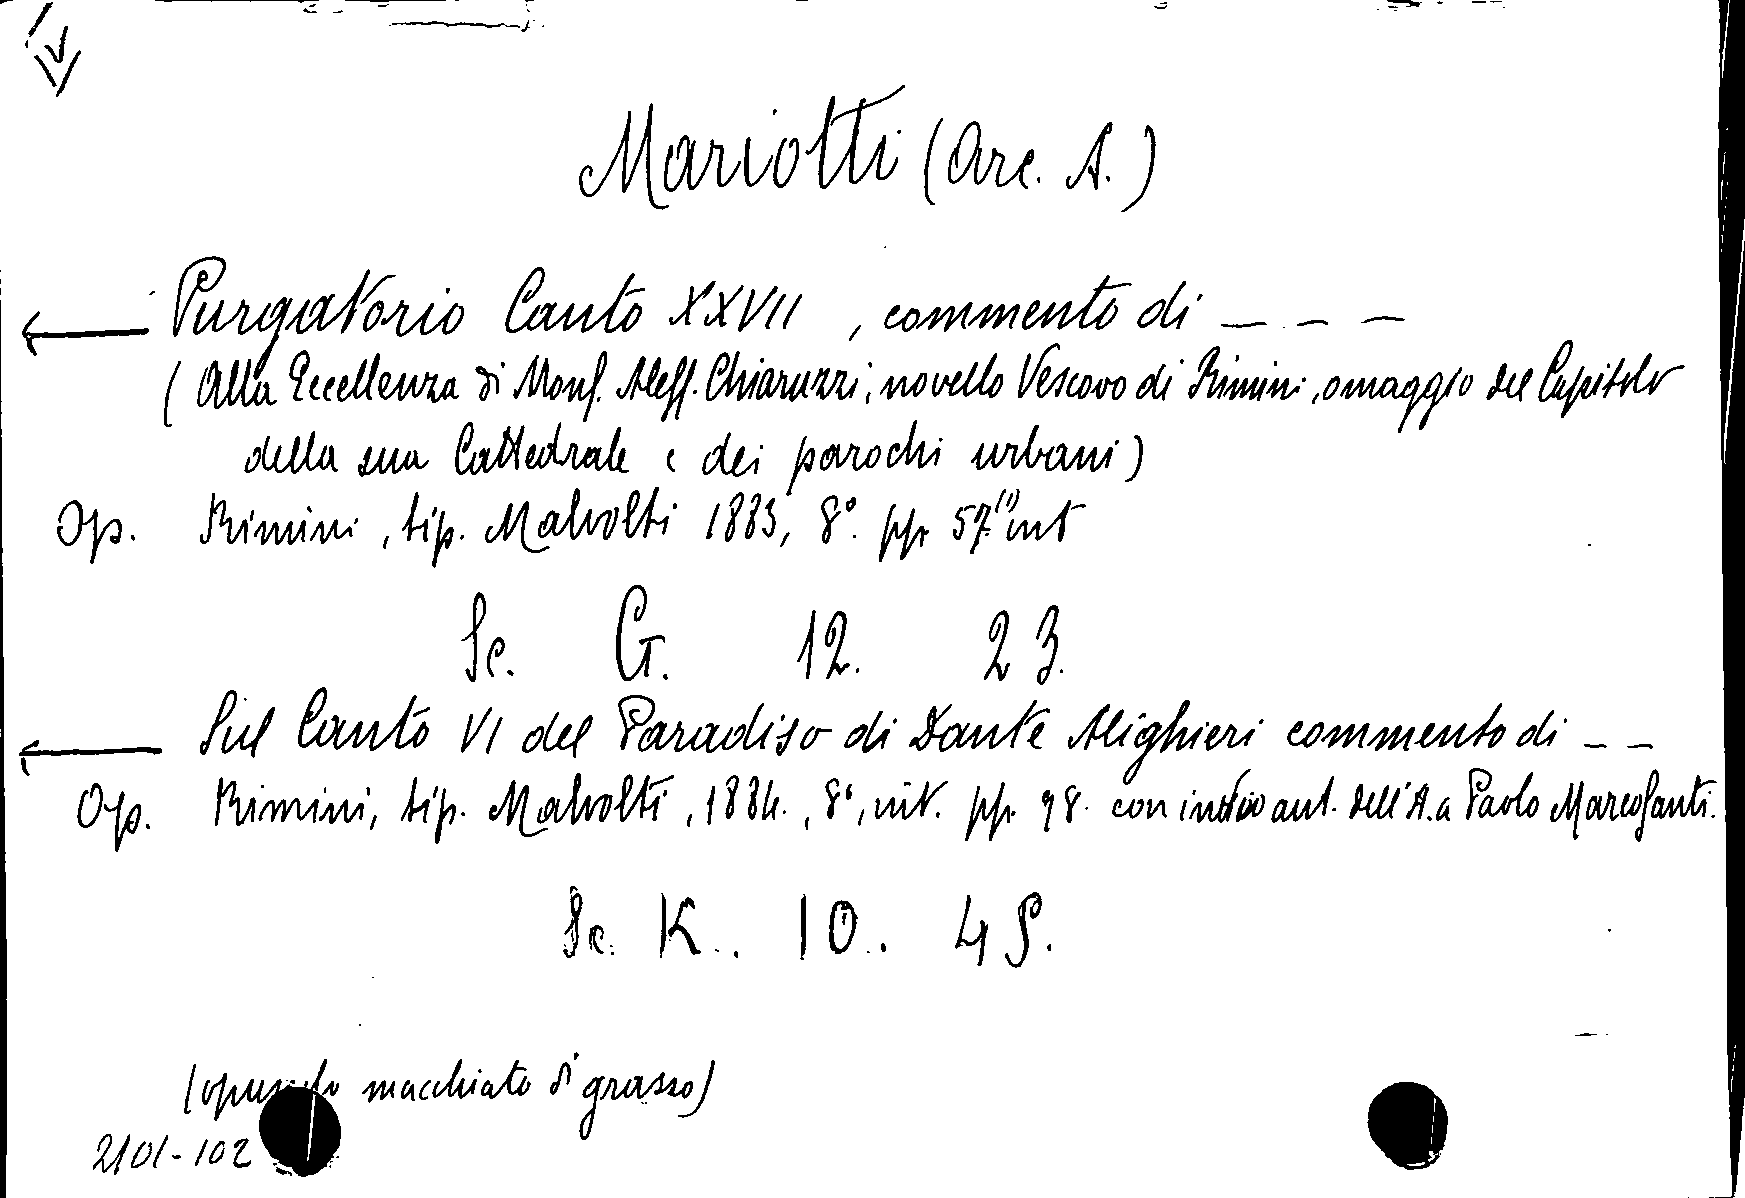 Mariotti (Arc. A.)
Purgatorio Canto XXVII, commento di _ _ _
(Alla Eccellenza di Mons. Aless. Chiaruzzi, novello Vescovo di Rimini, omaggio del Capitolo
della sua Cattedrale e dei parochi urbani)
Op. Rimini, tip. Malvolti 1883, 8°. pp. 57.(1) int
Sc. G. 12. 23.
Sul Canto VI del Paradiso di Dante Alighieri commento di _ _
Op. Rimini, tip. Malvolti, 1884., 8°, int. pp. 98. con aut. dell'A. a Paolo Marcosanti.
Sc. K. 10. 45.
(opuscolo macchiato di grasso)
2101-102